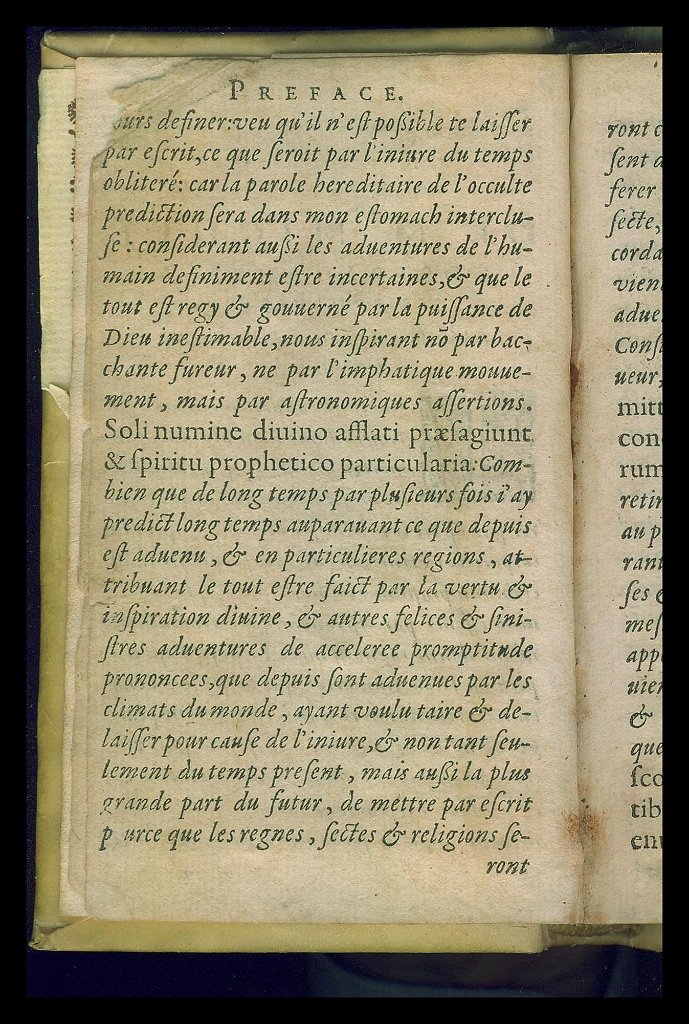 PREFACE.
ours definer:veu qu'il n'est poßible te laiſſer
par eſcrit,ce que ſeroit par l'iniure du temps
obliteré: car la parole hereditaire de l'occulte
prediction ſera dans mon eſtomach interclu-
ſe : conſiderant außi les aduentures de l'hu-
main definiment eſtre incertaines,& que le
tout eſt regy & gouuerné par la puiſſance de
Dieu ineſtimable,nous inſpirant nō par bac-
chante fureur, ne par l'imphatique mouue-
ment, mais par aſtronomiques aſſertions.
Soli numine diuino afflati præſagiunt
& ſpiritu prophetico particularia:Com-
bien que de long temps par pluſieurs fois i'ay
predict long temps auparauant ce que depuis
eſt aduenu, & en particulieres regions, at-
tribuant le tout eſtre faict par la vertu &
inſpiration diuine, & autres felices & ſini-
ſtres aduentures de acceleree promptitude
prononcees,que depuis ſont aduenues par les
climats du monde, ayant voulu taire & de-
laiſſer pour cauſe de l'iniure,& non tant ſeu-
lement du temps preſent, mais außi la plus
grande part du futur, de mettre par eſcrit
p urce que les regnes, ſectes & religions ſe-
ront
ront c
ſent d
ferer
ſecte,
corda
vien
adue
Conſ
ueur,
mitt
con
rum
retir
au p
rant
ſes
meſ
app
uien
&
que
ſco
tib